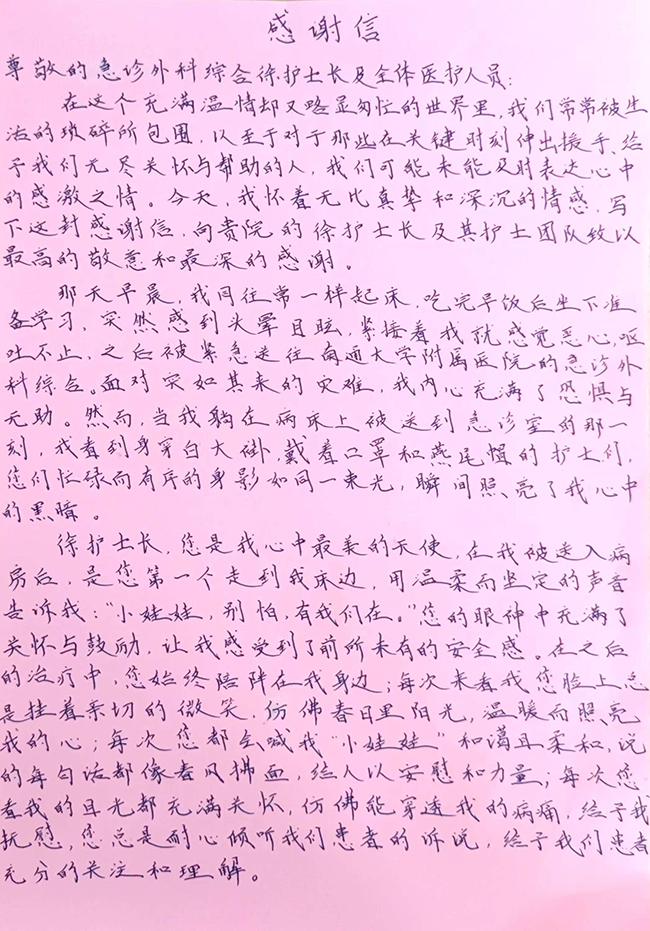 感谢信
尊敬的急诊外科综合徐护士长及全体医护人员：
在这个充满温情却又略显匆忙的世界里，我们常常被生
活的琐碎所包围，以至于对于那些在关键时刻伸出援手、给
予我们无尽关怀与帮助的人，我们可能未能及时表达心中
的感激之情。今天，我怀着无比真挚和深沉的情感，写
下这封感谢信，向贵院的徐护士长及其护士团队致以
最高的敬意和最深的感谢。
那天早晨，我同往常一样起床，吃完早饭后坐下准
备学习，突然感到头晕目眩，紧接着我就感觉恶心，呕
吐不止，之后被紧急送往南通大学附属医院的急诊外
科综合。面对突如其来的灾难，我内心充满了恐惧与
无助。然而，当我躺在病床上被送到急诊室的那一
刻，我看到身穿白大褂，戴着口罩和燕尾帽的护士们，
您们忙碌而有序的身影如同一束光，瞬间照亮了我心中
的黑暗。
徐护士长，您是我心中最美的天使，在我被送入病
房后，是您第一个走到我床边，用温柔而坚定的声音
告诉我：“小娃娃，别怕，有我们在。”您的眼神中充满了
关怀与鼓励，让我感受到了前所未有的安全感。在之后
的治疗中，您始终陪伴在我身边；每次来看我您脸上总
是挂着亲切的微笑，仿佛春日里阳光，温暖而照亮
我的心；每次您都会喊我“小娃娃”和蔼且柔和，说
的每句话都像春风拂面，给人以安慰和力量；每次您
看我的目光都充满关怀，仿佛能穿透我的病痛，给予我
抚慰，您总是耐心倾听我们患者的诉说，给予我们患者
充分的关注和理解。